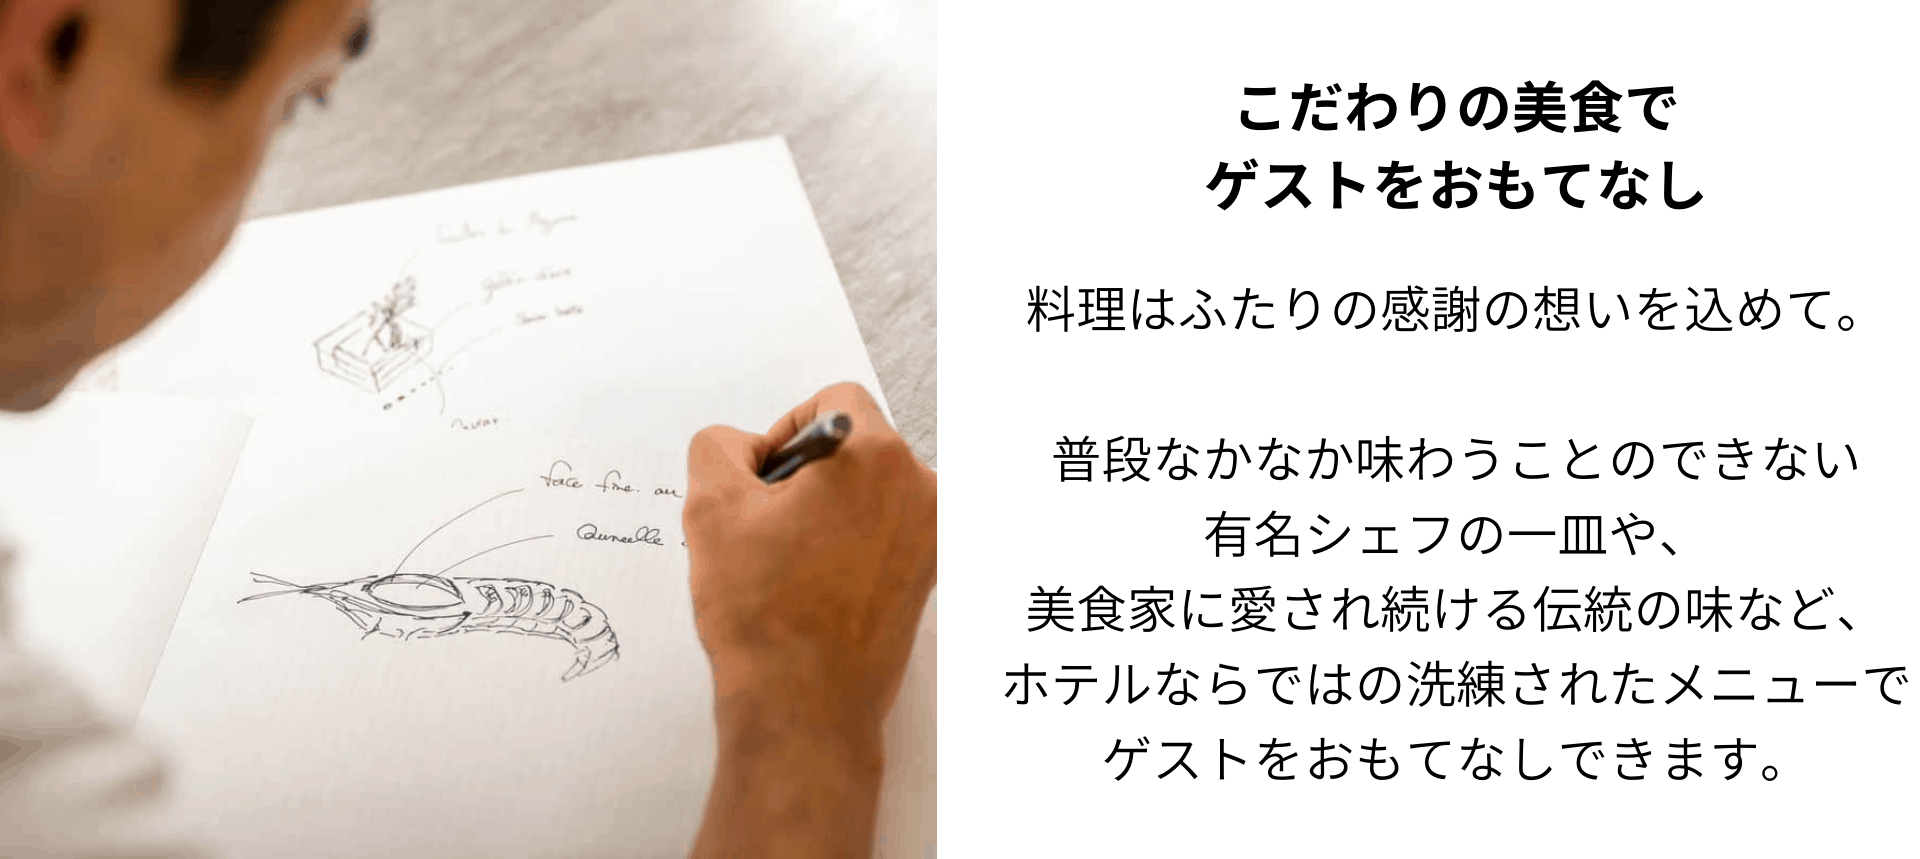 こだわりの美食で
ゲストをおもてなし
料理はふたりの感謝の想いを込めて。
普段なかなか味わうことのできない
有名シェフの一皿や、
美食家に愛され続ける伝統の味など、
ホテルならではの洗練されたメニューで
ゲストをおもてなしできます。
face fine. au